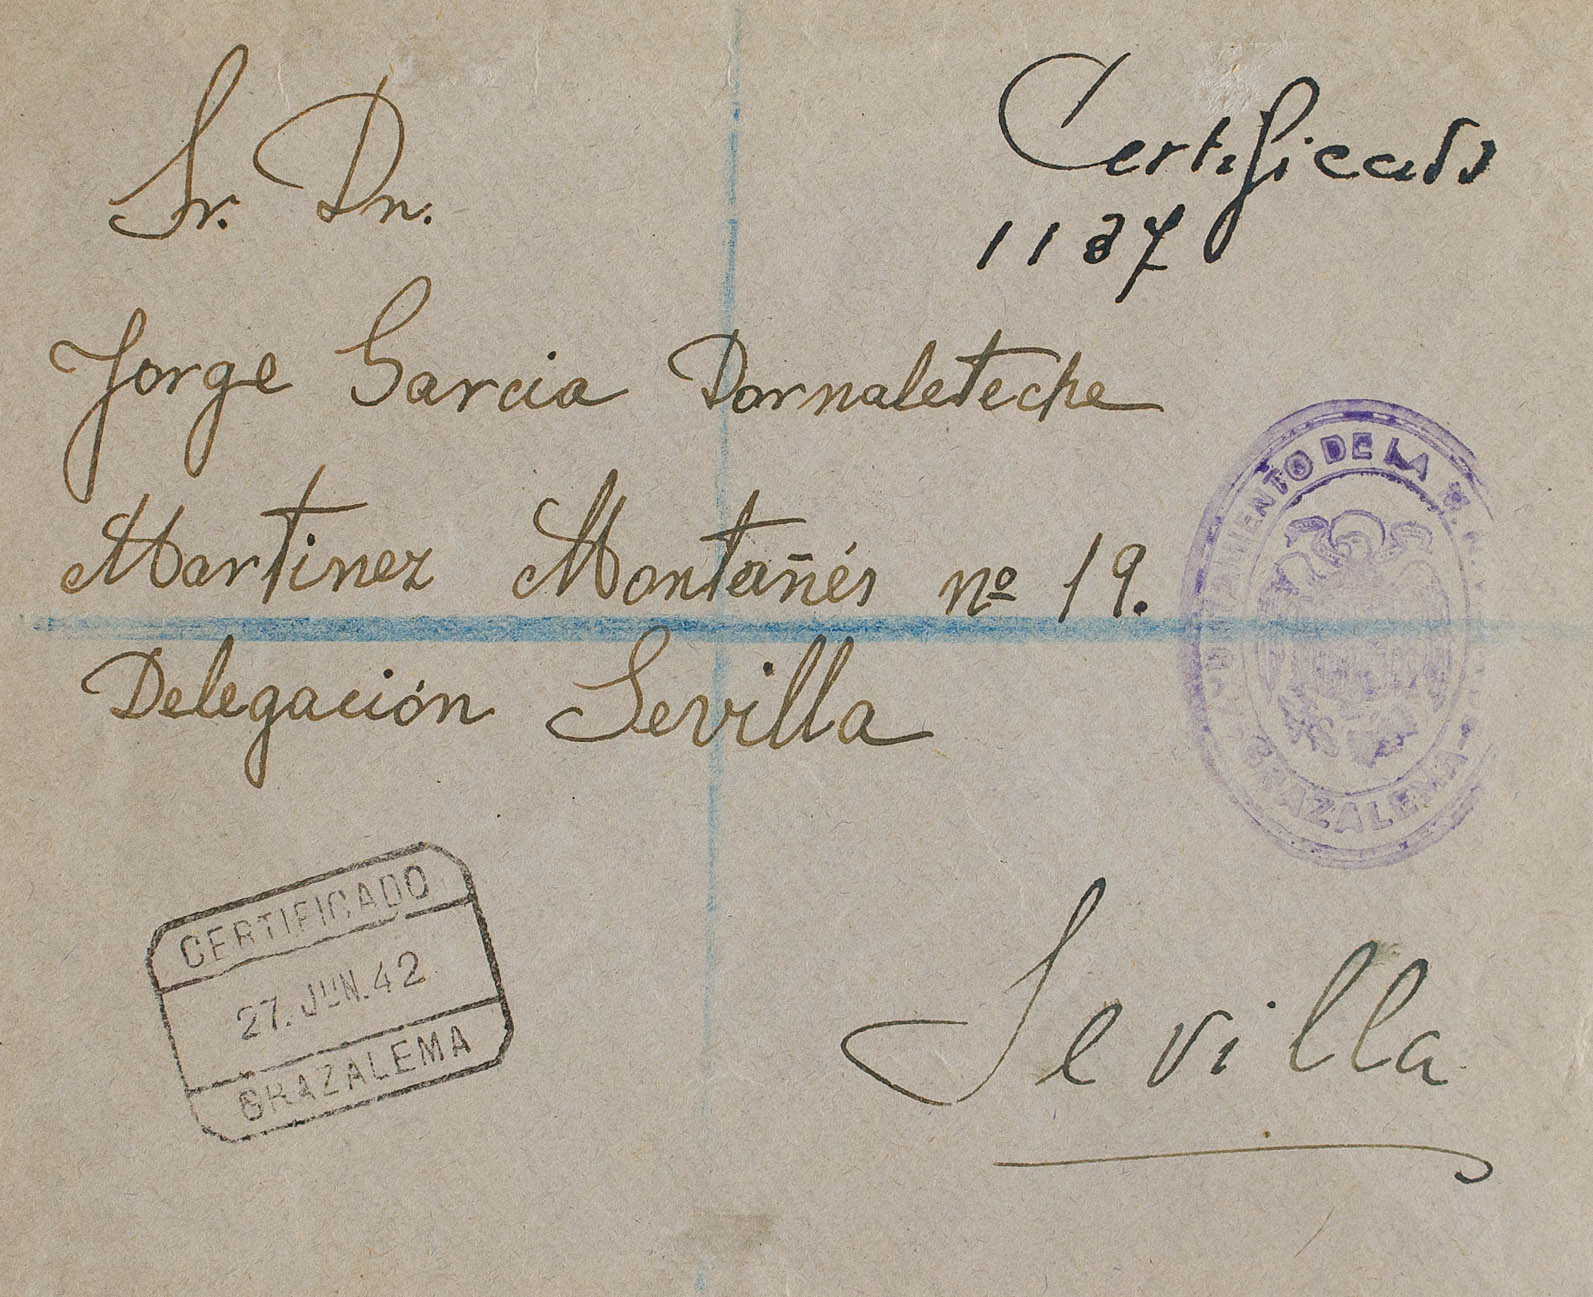 Sr. Dn.
Certificado
1137
Jorge Garcia Dornaleteche
Martinez Montañés nº 19.
Delegación Sevilla
AYUNTAMIENTO DE LA
GRAZALEMA
CERTIFICADO
27. JUN. 42
GRAZALEMA
Sevilla